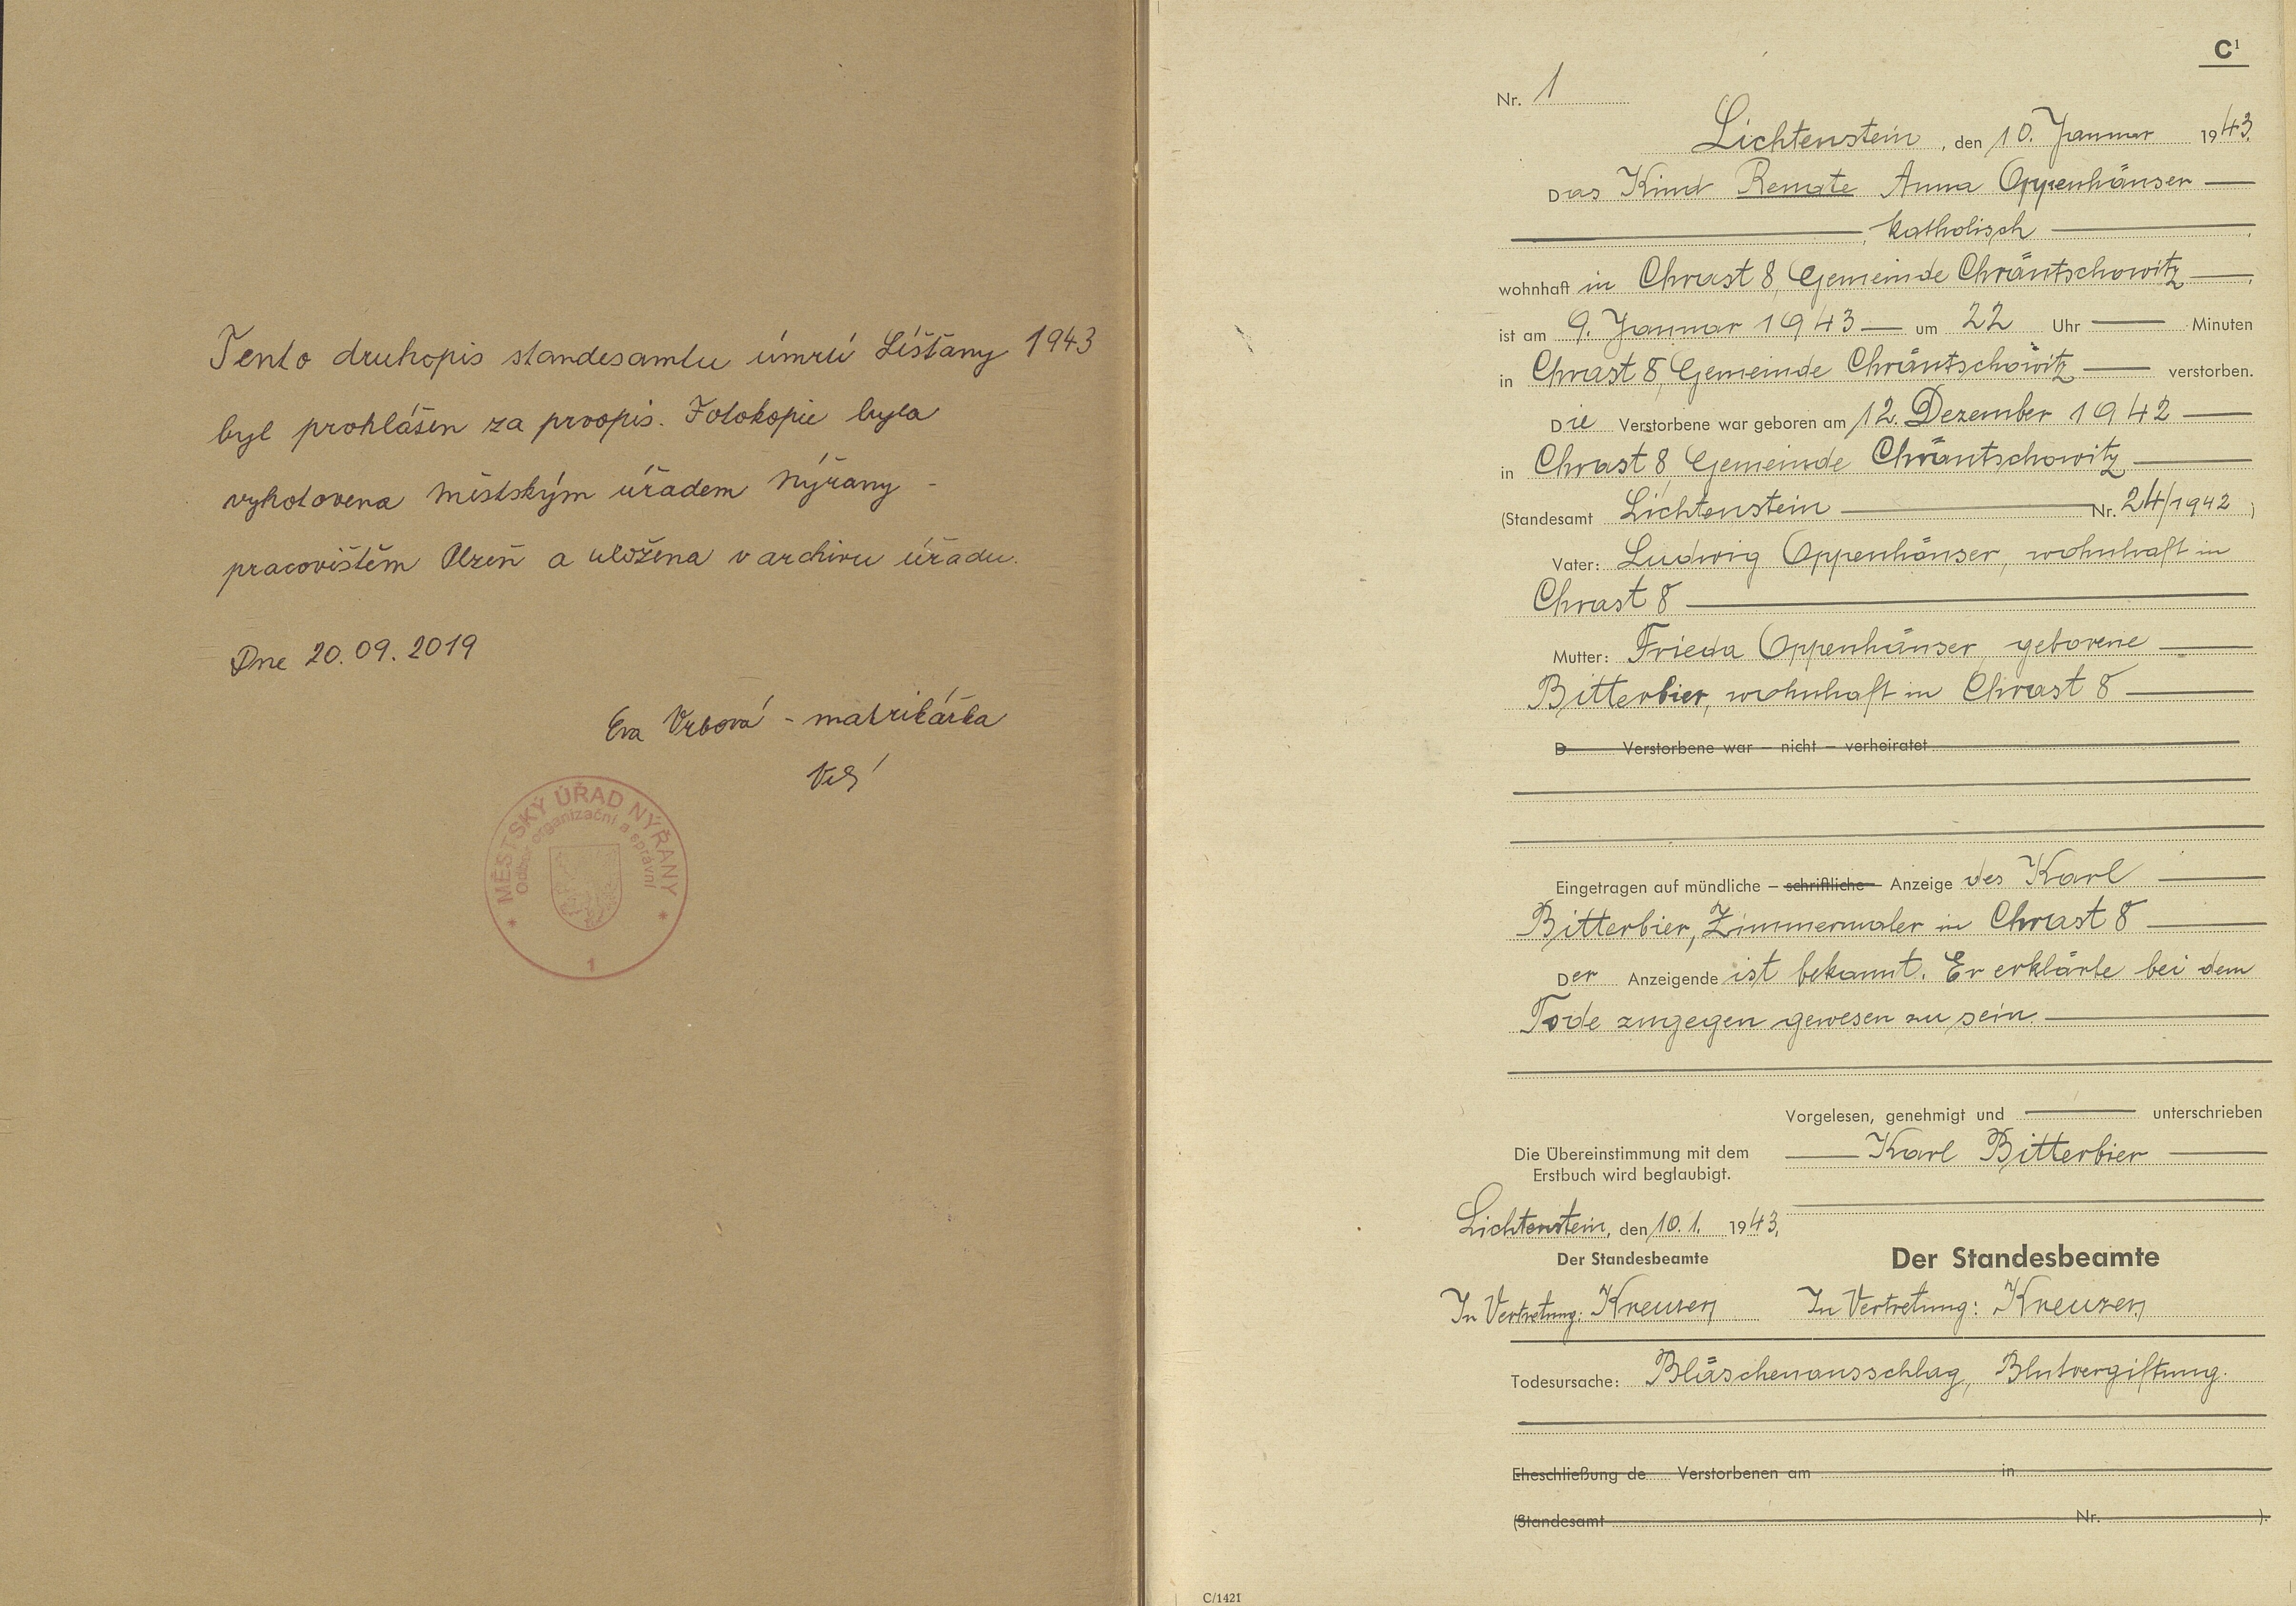 Tento druhopis standesamtu úmrtí Líšťany 1943
byl prohlášen za prvopis. Fotokopie byla
vyhotovena Městským úřadem Nýřany -
pracovištěm Plzeň a uložena v archivu úřadu.
Dne 20.09.2019
Eva Vrbová - matrikářka
MĚSTSKÝ ÚŘAD NÝŘANY
Odbor organizační a správní
1
C1
Nr. 1
Lichtenstein, den 10. Januar 1943.
Das Kind Renate Anna Oppenhäuser —
—, katholisch —.
wohnhaft in Chrast 8, Gemeinde Chräntschowitz —,
ist am 9. Januar 1943 — um 22 Uhr — Minuten
in Chrast 8, Gemeinde Chräntschowitz — verstorben.
Die Verstorbene war geboren am 12. Dezember 1942 —
in Chrast 8, Gemeinde Chräntschowitz —
(Standesamt Lichtenstein — Nr. 24/1942)
Vater: Ludwig Oppenhäuser, wohnhaft in
Chrast 8 —
Mutter: Frieda Oppenhäuser, geborene —
Bitterbier, wohnhaft in Chrast 8 —
D Verstorbene war – nicht – verheiratet
Eingetragen auf mündliche – schriftliche – Anzeige des Karl —
Bitterbier, Zimmermaler in Chrast 8 —
Der Anzeigende ist bekannt. Er erklärte bei dem
Tode zugegen gewesen zu sein. —
Vorgelesen, genehmigt und — unterschrieben
— Karl Bitterbier —
Die Übereinstimmung mit dem
Erstbuch wird beglaubigt.
Lichtenstein, den 10.1. 1943.
Der Standesbeamte
In Vertretung: Kreuzer
Der Standesbeamte
In Vertretung: Kreuzer
Todesursache: Bläschenausschlag, Blutvergiftung.
Eheschließung de Verstorbenen am in
(Standesamt Nr. ).
C/1421